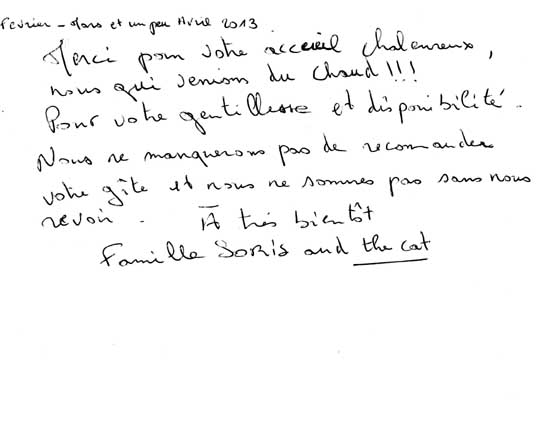 Fevrier - Mars et un peu Avril 2013.
Merci pour votre accueil chaleureux,
nous qui venions du chaud!!!
Pour votre gentillesse et disponibilité.
Nous ne manquerons pas de recomander
votre gîte et nous ne sommes pas sans nous
revoir. A très bientôt
Famille SORIS and the cat